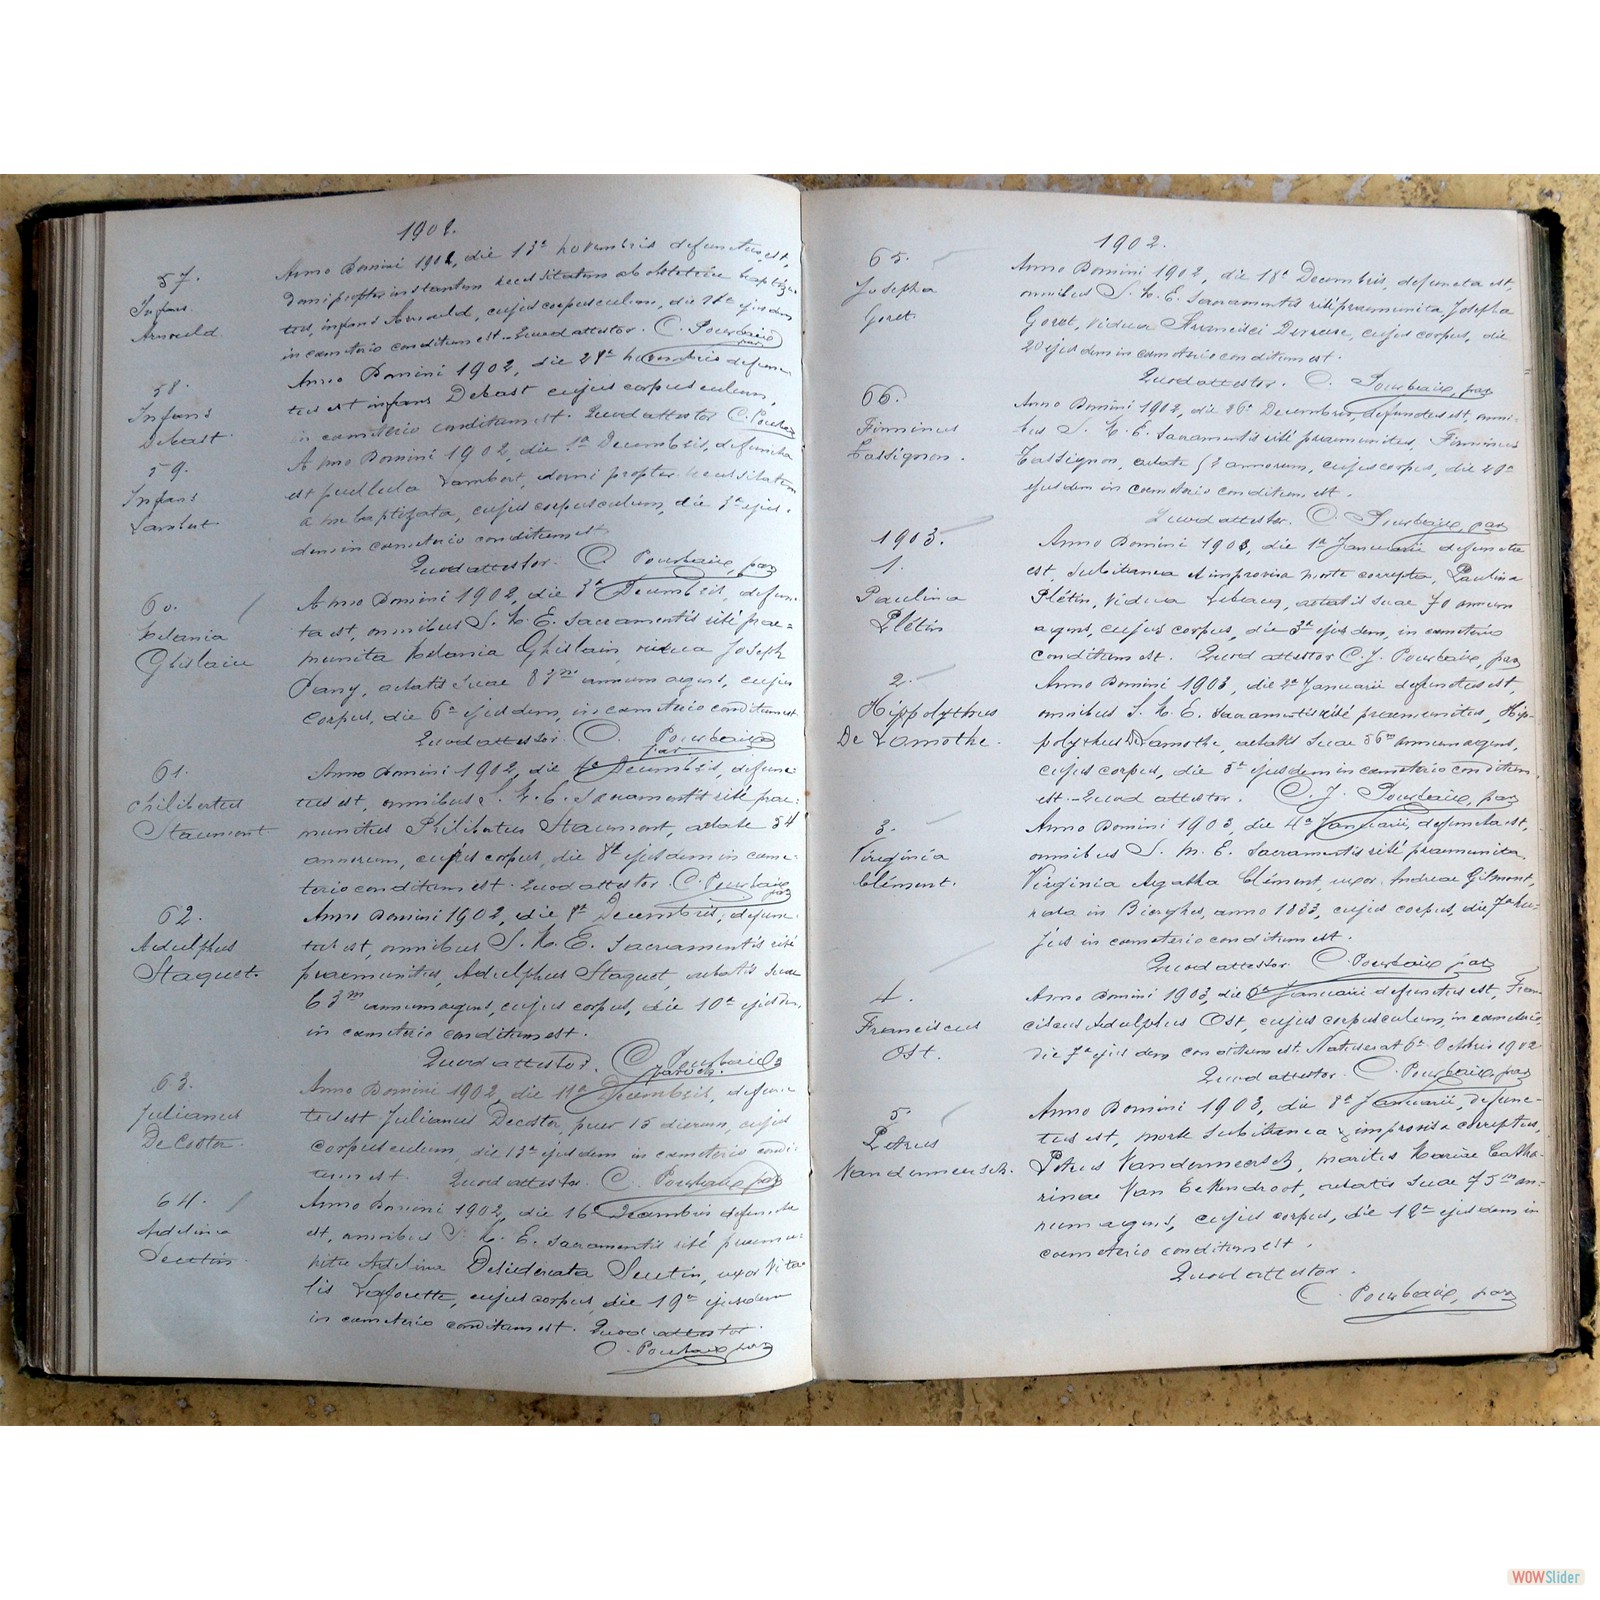 1902.
57.
Infans
Arnould.
Anno Domini 1902, die 13ª novembris defunctus est,
domi propter instantem necessitatem ab obstetrice baptiza-
tus, infans Arnould, cujus corpusculum, die ejusdem
in cœmeterio conditum est. Quod attestor. C. Pourbaix
par
58.
Infans
Debast.
Anno Domini 1902, die novembris defunc-
tus est infans Debast cujus corpusculum,
in cœmeterio conditum est. Quod attestor C. Pourbaix
59.
Infans
Lambert
Anno Domini 1902, die 1ª Decembris, defuncta
est puellula Lambert, domi propter necessitatem
a me baptizata, cujus corpusculum, die 3ª ejus-
dem in cœmeterio conditum est
Quod attestor. C. Pourbaix, par
60.
Melania
Ghislain
Anno Domini 1902, die 3ª Decembris, defunc-
ta est, omnibus S. M. E. Sacramentis rité prae=
munita Melania Ghislain, vidua Joseph
Dany, aetatis suae annum agens, cujus
corpus, die 6ª ejusdem, in cœmeterio conditum est.
Quod attestor. C. Pourbaix
par
61.
Philibertus
Staumont.
Anno Domini 1902, die Decembris, defunc-
tus est, omnibus S. M. E. Sacramentis rité prae-
munitus Philibertus Staumont, aetate 54
annorum, cujus corpus, die 8ª ejusdem in cœme-
terio conditum est. Quod attestor. C. Pourbaix
par
62.
Adulphus
Staquet.
Anno Domini 1902, die 8ª Decembris, defunc-
tus est, omnibus S. M. E. Sacramentis rité
praemunitus, Adulphus Staquet, aetatis suae
63m annum agens, cujus corpus, die 10ª ejusdem,
in cœmeterio conditum est.
Quod attestor. C. Pourbaix
paroch.
63.
Julianus
De Coster.
Anno Domini 1902, die 11ª Decembris, defunc-
tus est Julianus Decoster, puer 15 dierum, cujus
corpusculum, die 13ª ejusdem in cœmeterio condi-
tum est. Quod attestor. C. Pourbaix par
64.
Adelina
Seutin.
Anno Domini 1902, die 16ª Decembris defuncta
est, omnibus S. M. E. Sacramentis rité praemu-
nita Adelina Desiderata Seutin, uxor Vita-
lis Lafourtte, cujus corpus, die 19ª ejusdem
in cœmeterio conditum est. Quod attestor.
C. Pourbaix par
1902.
65.
Josepha
Goret.
Anno Domini 1902, die 18ª Decembris, defuncta est,
omnibus S. M. E. Sacramentis rité praemunita Josepha
Goret, vidua Francisci cujus corpus, die
20 ejusdem in cœmeterio conditum est.
Quod attestor. C. Pourbaix, par
66.
Firminus
Tassignon.
Anno Domini 1902, die 26ª Decembris, defunctus est, omni-
bus S. M. E. Sacramentis rité praemunitus, Firminus
Tassignon, aetate annorum, cujus corpus, die 29ª
ejusdem in cœmeterio conditum est.
Quod attestor. C. Pourbaix, par
1903.
1.
Paulina
Plétin
Anno Domini 1903, die 1ª Januarii defuncta
est, subitanea et improvisa morte correpta, Paulina
Plétin, vidua Lebacq, aetatis suae 70 annum
agens, cujus corpus, die 3ª ejusdem, in cœmeterio
conditum est. Quod attestor C. J. Pourbaix, par
2.
Hippolythus
De Lamothe.
Anno Domini 1903, die 2ª Januarii defunctus est,
omnibus S. M. E. Sacramentis rité praemunitus, Hip-
polythus De Lamothe, aetatis suae 56m annum agens,
cujus corpus, die 5ª ejusdem in cœmeterio conditum
est. - Quod attestor. C. J. Pourbaix, par
3.
Virginia
Clément.
Anno Domini 1903, die 4ª Januarii, defuncta est,
omnibus S. M. E. Sacramentis rité praemunita
Virginia Agatha Clément, uxor Andreae Gilmont,
nata in Bierghes, anno 1833, cujus corpus, die 7ª hu-
jus in cœmeterio conditum est.
Quod attestor. C. Pourbaix par
4.
Franciscus
Ost.
Anno Domini 1903, die 6ª Januarii defunctus est, Fran-
ciscus Adulphus Ost, cujus corpusculum, in cœmeterio,
die 7ª ejusdem conditum est. Natus erat 6ª Octobris 1902
Quod attestor. C. Pourbaix, par
5.
Petrus
Vandermeersch.
Anno Domini 1903, die 8ª Januarii, defunc-
tus est, morte subitanea & improvisa correptus,
Petrus Vandermeersch, maritus Mariae Catha-
rinae Van Eekendroot, aetatis suae 75m an-
num agens, cujus corpus, die 12ª ejusdem in
cœmeterio conditum est.
Quod attestor.
C. Pourbaix, par
WOWSlider